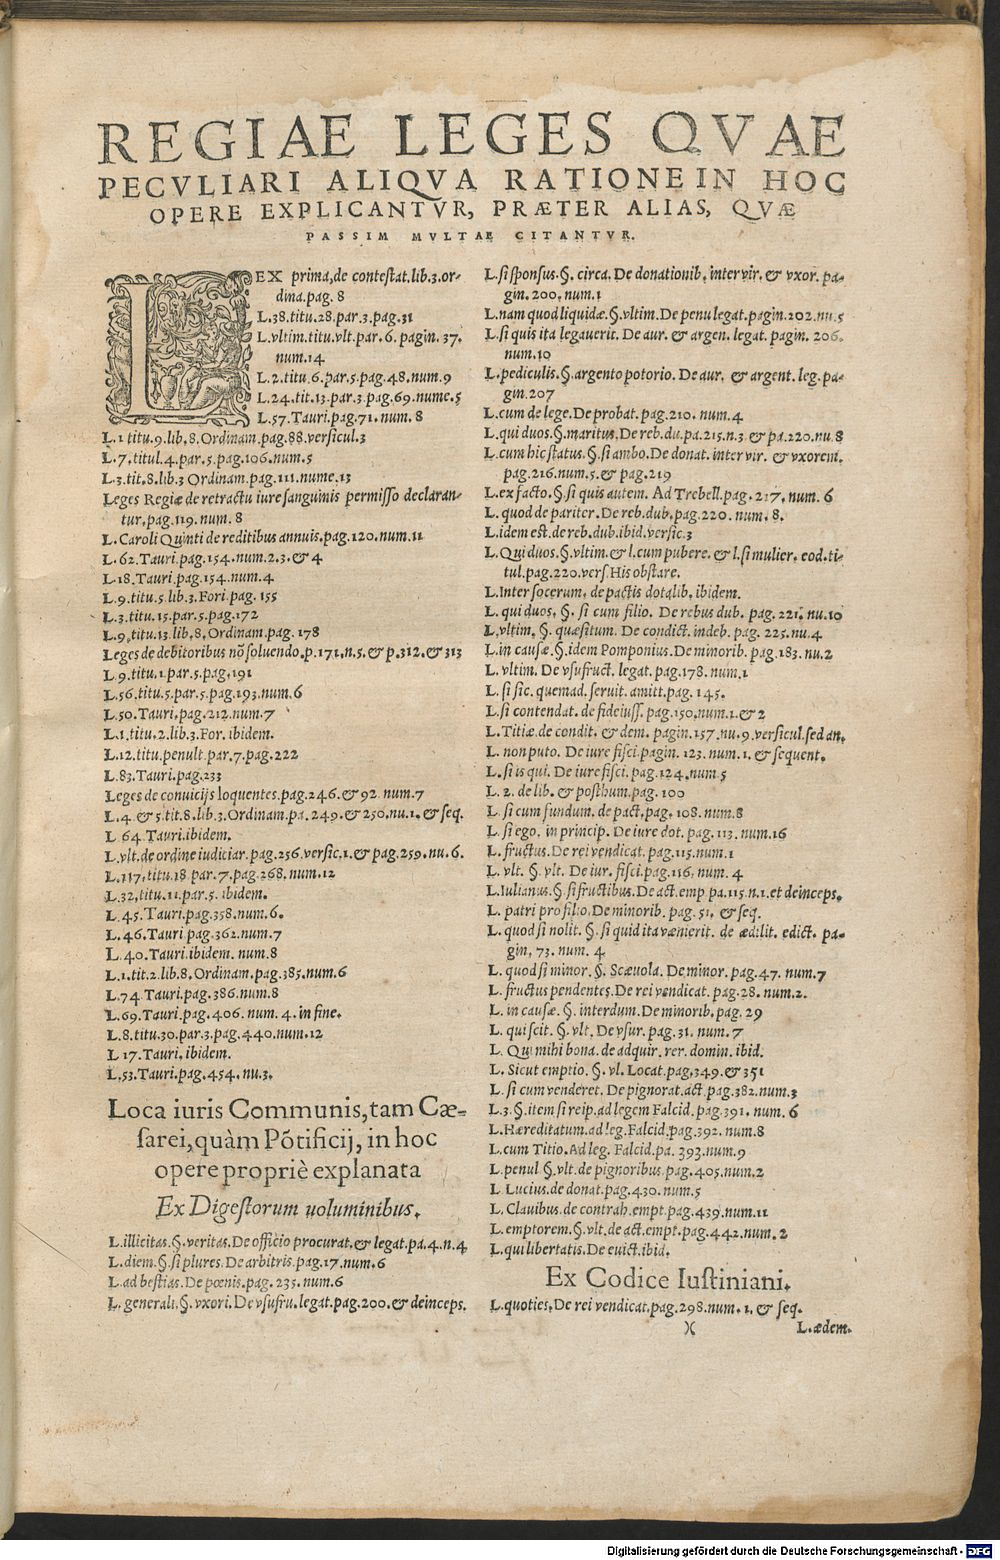 REGIAE LEGES QVAE
PECVLIARI ALIQVA RATIONE IN HOC
OPERE EXPLICANTVR, PRÆTER ALIAS, QVÆ
PASSIM MVLTAE CITANTVR.
LEX prima, de contestat. lib. 3. or-
dina. pag. 8
L. 38. titu. 28. par. 3. pag. 31
L. vltim. titu. vlt. par. 6. pagin. 37.
num. 14
L. 2. titu. 6. par. 5. pag. 48. num. 9
L. 24. tit. 13. par. 3. pag. 69. nume. 5
L. 57. Tauri. pag. 71. num. 8
L. 1 titu. 9. lib. 8. Ordinam. pag. 88. versicul. 3
L. 7. titul. 4. par. 5. pag. 106. num. 5
L. 3. tit. 8. lib. 3 Ordinam. pag. 111. nume. 13
Leges Regiæ de retractu iure sanguinis permisso declaran-
tur, pag. 119. num. 8
L. Caroli Quinti de reditibus annuis. pag. 120. num. 11
L. 62. Tauri. pag. 154. num. 2. 3. & 4
L. 18. Tauri. pag. 154. num. 4
L. 9. titu. 5. lib. 3. Fori. pag. 155
L. 3. titu. 15. par. 5. pag. 172
L. 9. titu. 13. lib. 8. Ordinam. pag. 178
Leges de debitoribus nõ soluendo. p. 171. n. 5. & p. 312. & 313
L. 9. titu. 1. par. 5. pag. 191
L. 56. titu. 5. par. 5. pag. 193. num. 6
L. 50. Tauri. pag. 212. num. 7
L. 1. titu. 2. lib. 3. For. ibidem.
L. 12. titu. penult. par. 7. pag. 222
L. 83. Tauri. pag. 233
Leges de convicijs loquentes. pag. 246. & 92. num. 7
L. 4. & 5. tit. 8. lib. 3. Ordinam. pa. 249. & 250. nu. 1. & seq.
L 64. Tauri. ibidem.
L. vlt. de ordine iudiciar. pag. 256. versic. 1. & pag. 259. nu. 6.
L. 117. titu. 18 par. 7. pag. 268. num. 12
L. 32. titu. 11. par. 5. ibidem.
L. 45. Tauri. pag. 358. num. 6.
L. 46. Tauri pag. 362. num. 7
L. 40. Tauri. ibidem. num. 8
L. 1. tit. 2. lib. 8. Ordinam. pag. 385. num. 6
L. 74 Tauri. pag. 386. num. 8
L. 69. Tauri. pag. 406. num. 4. in fine.
L. 8. titu. 30. par. 3. pag. 440. num. 12
L 17. Tauri. ibidem.
L. 53. Tauri. pag. 454. nu. 3.
Loca iuris Communis, tam Cæ-
sarei, quàm Põtificij, in hoc
opere propriè explanata
Ex Digestorum uoluminibus.
L. illicitas. §. veritas. De officio procurat. & legat. pa. 4. n. 4
L. diem. §. si plures. De arbitris. pag. 17. num. 6
L. ad bestias. De pœnis. pag. 235. num. 6
L. generali. §. vxori. De vsufru. legat. pag. 200. & deinceps.
L. si sponsus. §. circa. De donationib. inter vir. & vxor. pa-
gin. 200. num. 1
L. nam quod liquidæ. §. vltim. De penu legat. pagin. 202. nu. 5
L. si quis ita legauerit. De aur. & argen. legat. pagin. 206.
num. 10
L. pediculis. §. argento potorio. De aur. & argent. leg. pa-
gin. 207
L. cum de lege. De probat. pag. 210. num. 4
L. qui duos. §. maritus. De reb. du. pa. 215. n. 3. & pa. 220. nu. 8
L. cum hic status. §. si ambo. De donat. inter vir. & vxorem.
pag. 216. num. 5. & pag. 219
L. ex facto. §. si quis autem. Ad Trebell. pag. 217. num. 6
L. quod de pariter. De reb. dub. pag. 220. num. 8.
L. idem est. de reb. dub. ibid. versic. 3
L. Qui duos. §. vltim. & l. cum pubere. & l. si mulier. eod. ti-
tul. pag. 220. vers. His obstare.
L. Inter socerum. de pactis dotalib. ibidem.
L. qui duos. §. si cum filio. De rebus dub. pag. 221. nu. 10
L. vltim. §. quæsitum. De condict. indeb. pag. 225. nu. 4
L. in causæ. §. idem Pomponius. De minorib. pag. 183. nu. 2
L. vltim. De vsufruct. legat. pag. 178. num. 1
L. si sic. quemad. seruit. amitt. pag. 145.
L. si contendat. de fideiuss. pag. 150. num. 1. & 2
L. Titiæ. de condit. & dem. pagin. 157. nu. 9. versicul. sed an.
L. non puto. De iure fisci. pagin. 123. num. 1. & sequent.
L. si is qui. De iure fisci. pag. 124. num. 5
L. 2. de lib. & posthum. pag. 100
L. si cum fundum. de pact. pag. 108. num. 8
L. si ego. in princip. De iure dot. pag. 113. num. 16
L. fructus. De rei vendicat. pag. 115. num. 1
L. vlt. §. vlt. De iur. fisci. pag. 116. num. 4
L. Iulianus. §. si fructibus. De act. emp pa. 115. n. 1. et deinceps.
L. patri pro filio. De minorib. pag. 51. & seq.
L. quod si nolit. §. si quid ita vænierit. de ædilit. edict. pa-
gin. 73. num. 4
L. quod si minor. §. Scævola. De minor. pag. 47. num. 7
L. fructus pendentes. De rei vendicat. pag. 28. num. 2.
L. in causæ. §. interdum. De minorib. pag. 29
L. qui scit. §. vlt. De vsur. pag. 31. num. 7
L. Qui mihi bona. de adquir. rer. domin. ibid.
L. Sicut emptio. §. vl. Locat. pag. 349. & 351
L. si cum venderet. De pignorat. act. pag. 382. num. 3
L. 3. §. item si reip. ad legem Falcid. pag. 391. num. 6
L. Hæreditatum. ad leg. Falcid. pag. 392. num. 8
L. cum Titio. Ad leg. Falcid. pa. 393. num. 9
L. penul §. vlt. de pignoribus. pag. 405. num. 2
L. Lucius. de donat. pag. 430. num. 5
L. Clauibus. de contrah. empt. pag. 439. num. 11
L. emptorem. §. vlt. de act. empt. pag. 442. num. 2
L. qui libertatis. De euict. ibid.
Ex Codice Iustiniani.
L. quoties. De rei vendicat. pag. 298. num. 1. & seq.
)( L. ædem.
Digitalisierung gefördert durch die Deutsche Forschungsgemeinschaft - DFG